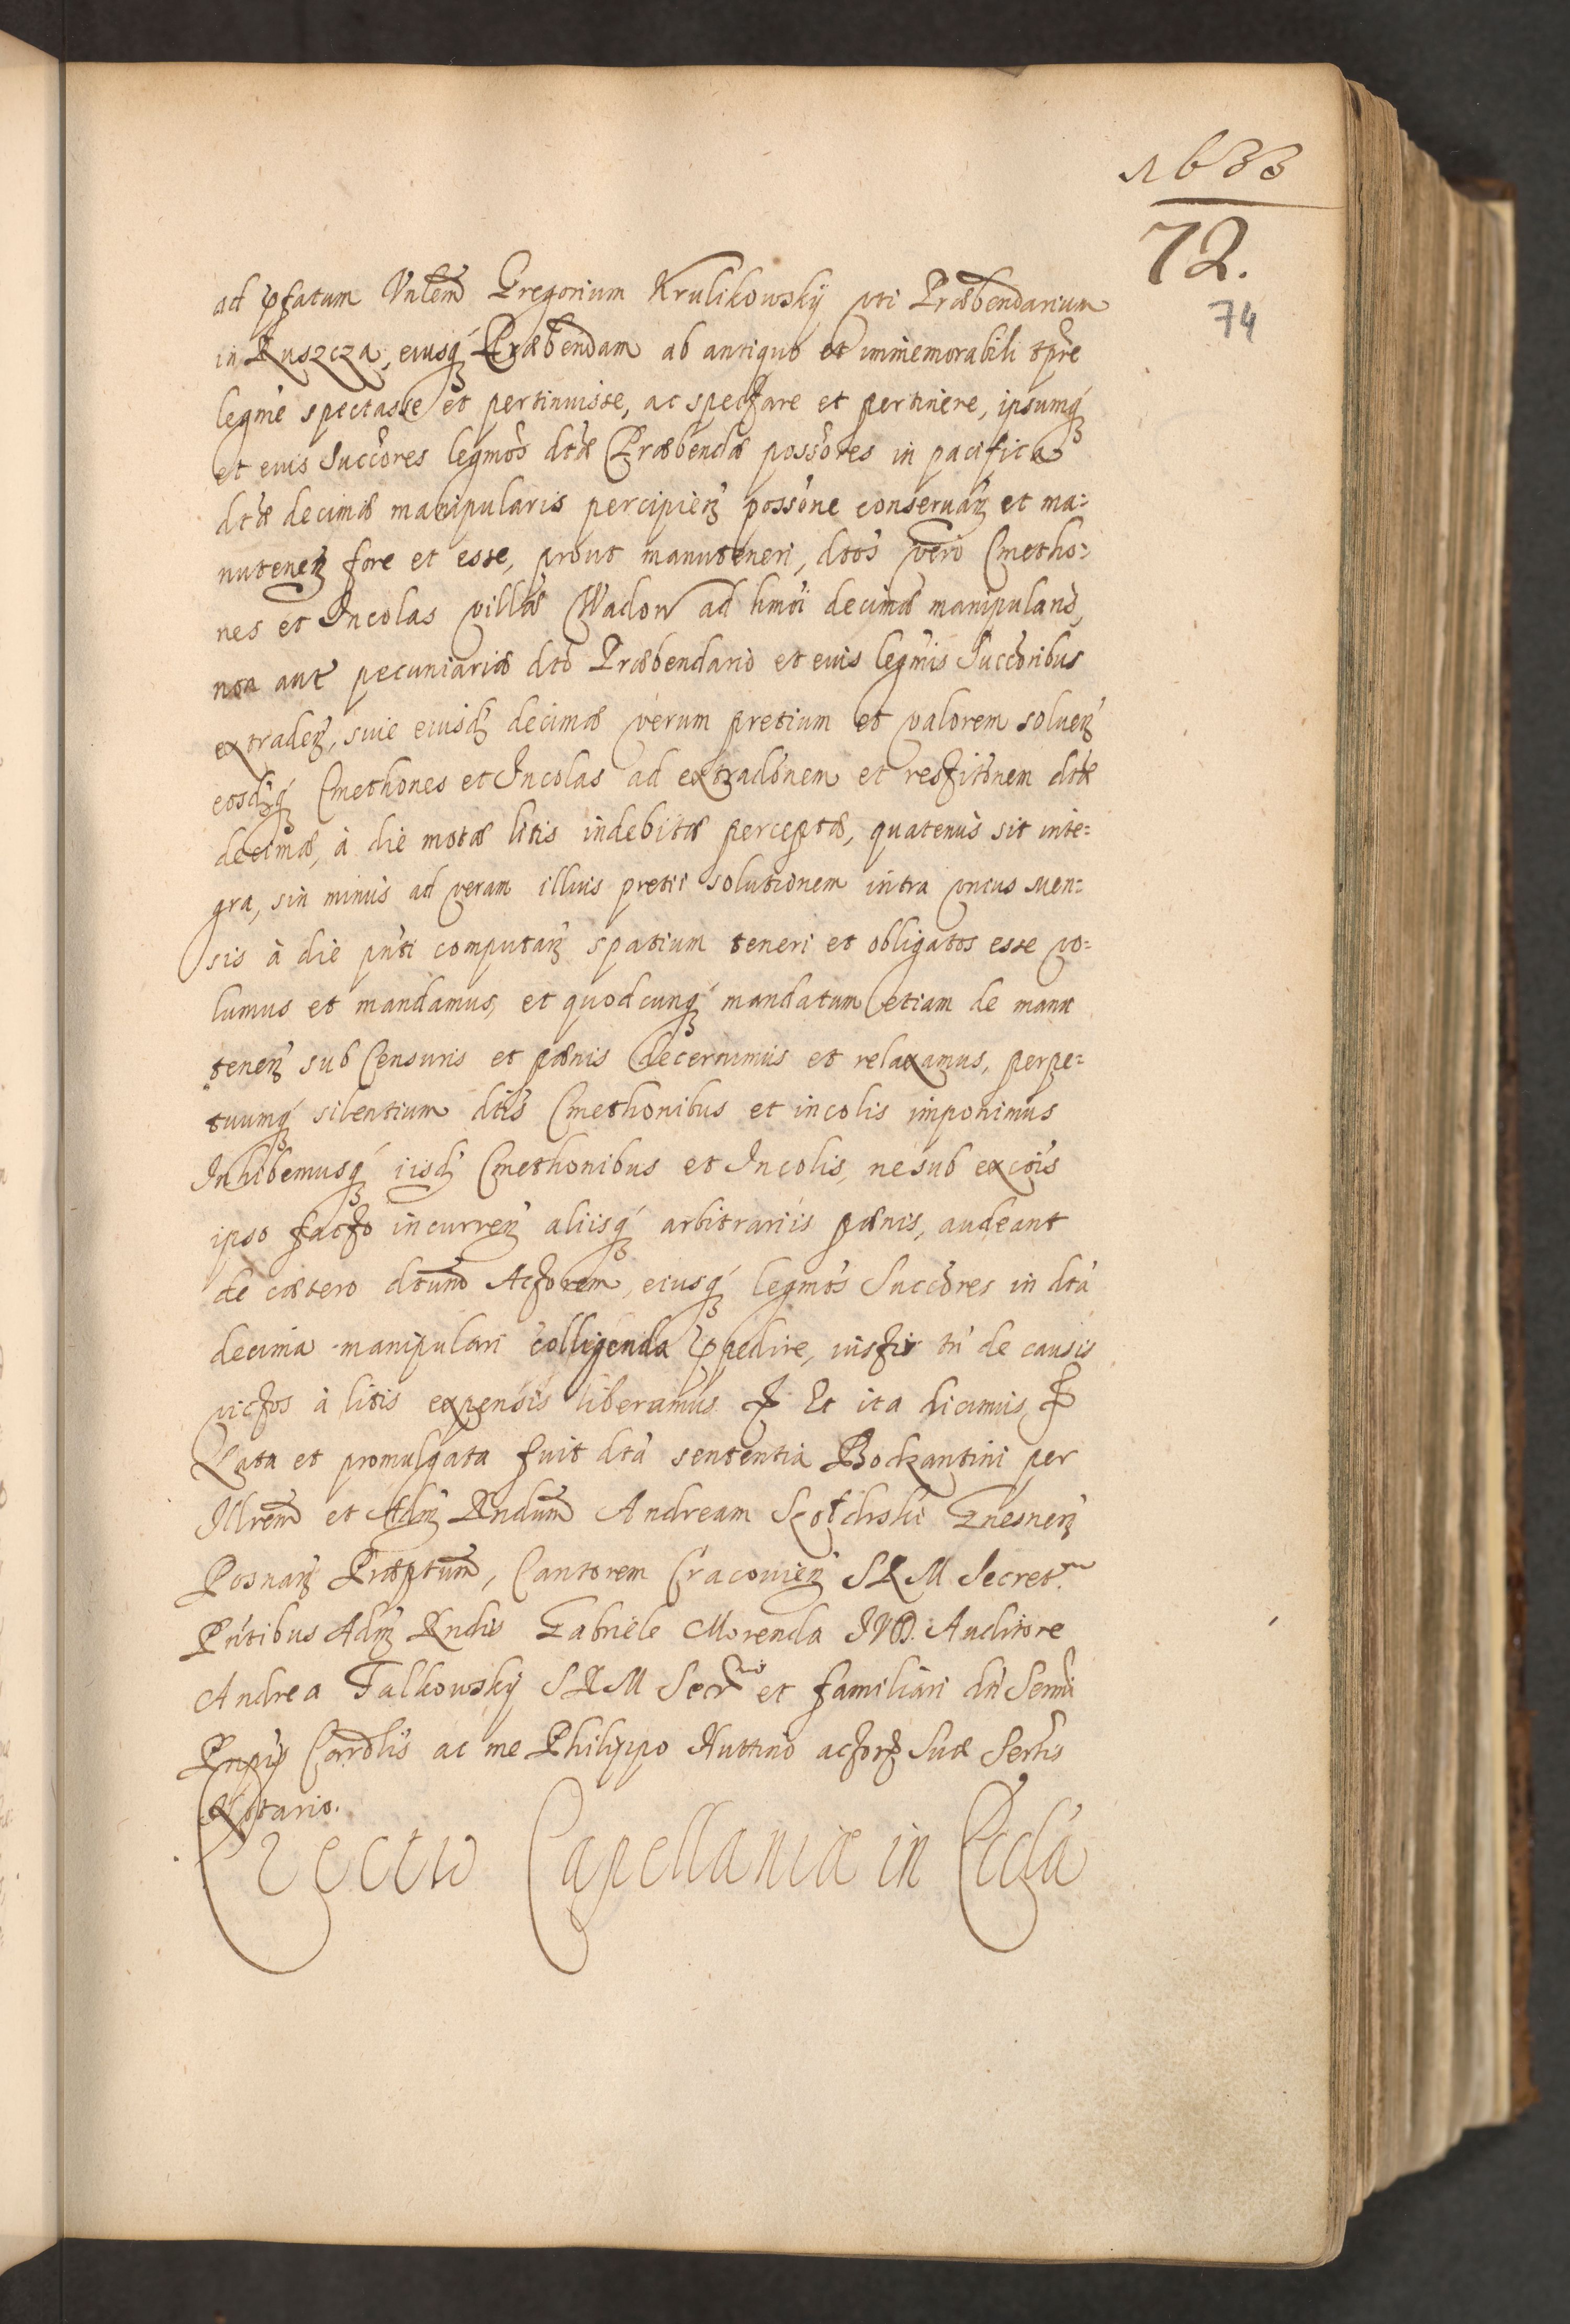 1633
72.
74
ad p̄fatum Vnlem̄ Gregorium Krulikowskÿ vti Præbendarium
in Ruszcza, eiusq́ꝫ Præbendam ab antiquo et immemorabili tp̄re
legmè spectasse et pertinuisse, ac spectare et pertinere, ipsumq́ꝫ
et euis Succ̄ores legmōs dtæ Præbendæ poss̄ores in pacifica
dtæ decimæ manipularis percipień poss̄one conseruań et ma:
nuteneń fore et esse, prout manuteneri, dtos vero Cmetho:
nes et Incolas villæ Wadow ad hmōi decimæ manipularis,
non aut̄ pecuniariæ dto Præbendario et euis legmis Succ̄oribus
extradeń, siue eiusd́ decimæ verum pretium et valorem solueń
eosd́q́ꝫ Cmethones et Incolas ad extradōnem et restitōnem dtæ
decimæ, à die motæ litis indebitæ perceptæ, quatenus sit inte:
gra, sin minus ad veram illius pretii solutionem intra vnius Men:
sis à die pn̄ti computań spatium teneri et obligatos esse vo:
lumus et mandamus, et quodcunq́ꝫ mandatum etiam de manu
teneń sub Censuris et pænis decernimus et relaxamus, perpe:
tuumq́ꝫ silentium dtis Cmethonibus et incolis imponimus
Inhibemusq́ꝫ iisd́ Cmethonibus et Incolis, ne sub exc̄ois
ipso facto incurreń aliisq́ꝫ arbitrariis pænis, audeant
de cætero dtum̄ Actorem, eiusq́ꝫ legmōs Succ̄ores in dtá
decima manipulari colligenda p̄pedire, iustis tn̄ de causis
victos à litis expensis liberamus ꝭ Et ita dicimus ꝭ
Lata et promulgata fuit dtá sententia Bodzantini per
Illrem̄ et Adḿ Rndum̄ Andream Szołdrski Gnesneń
Posnań Præptum̄, Cantorem Cracouień SRM Secret.
Pn̄tibus Adḿ Rndis Gabriele Morenda IVD. Auditore
Andrea Falkowskÿ SRM Secr̄ et familiari dn̄ Sermi
Pnpis Cardlis ac me Philippo Huttino actorꝫ Suæ Sertis
Notario.
Erectio Capellaniæ in Eccla